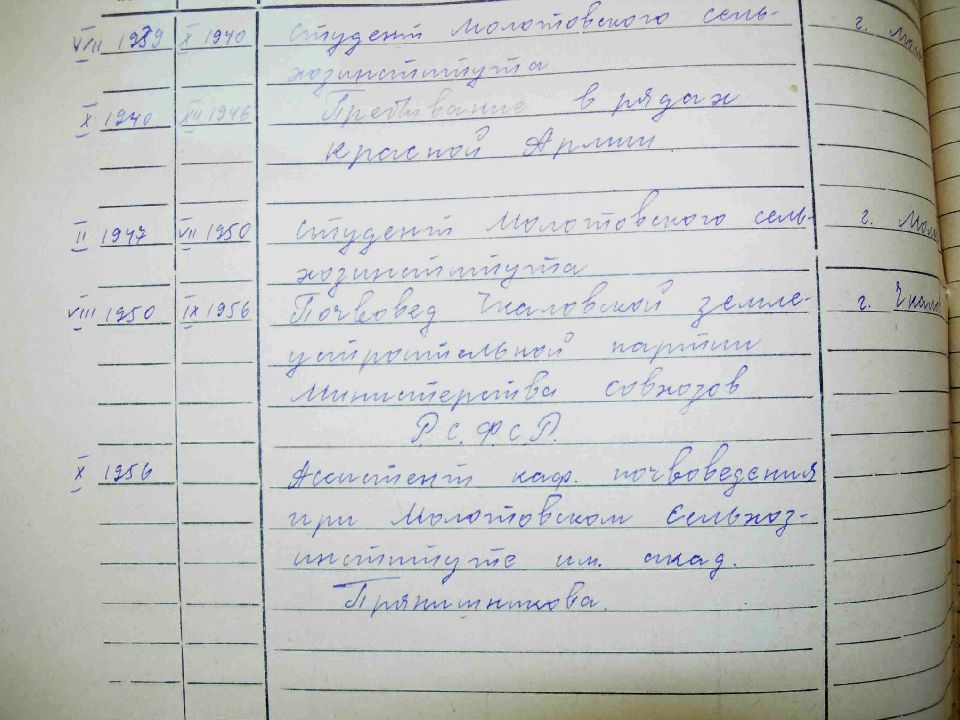 VIII 1939 X 1940 Студент Молотовского сель- г. Мол
хозинститута
X 1940 XII 1946 Пребывание в рядах
Красной Армии.
II 1947 VII 1950 Студент Молотовского сель- г. Мол
хозинститута
VIII 1950 IX 1956 Почвовед Чкаловской земле- г. Чкал
устроительной партии
Министерства совхозов
Р.С.Ф.С.Р.
X 1956 Ассистент каф. почвоведения
при Молотовском сельхоз-
институте им. акад.
Прянишникова.